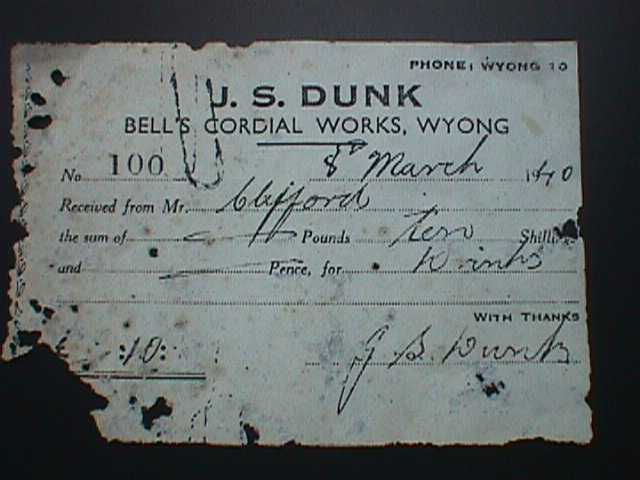 PHONE: WYONG 10
J. S. DUNK
BELL'S CORDIAL WORKS, WYONG
No 100 8th March 1940
Received from Mr. Clifford
the sum of Pounds ten Shillings
and Pence, for Drinks
WITH THANKS
£ :10: J. S. Dunk